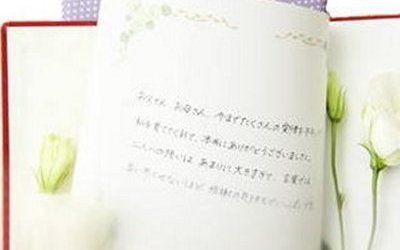 お父さん お母さん 今までたくさんの愛情を
私を育ててくれて、本当にありがとうございました。
二人への想いは あまりに大きすぎて、言葉では
言い表せないけど 感謝の